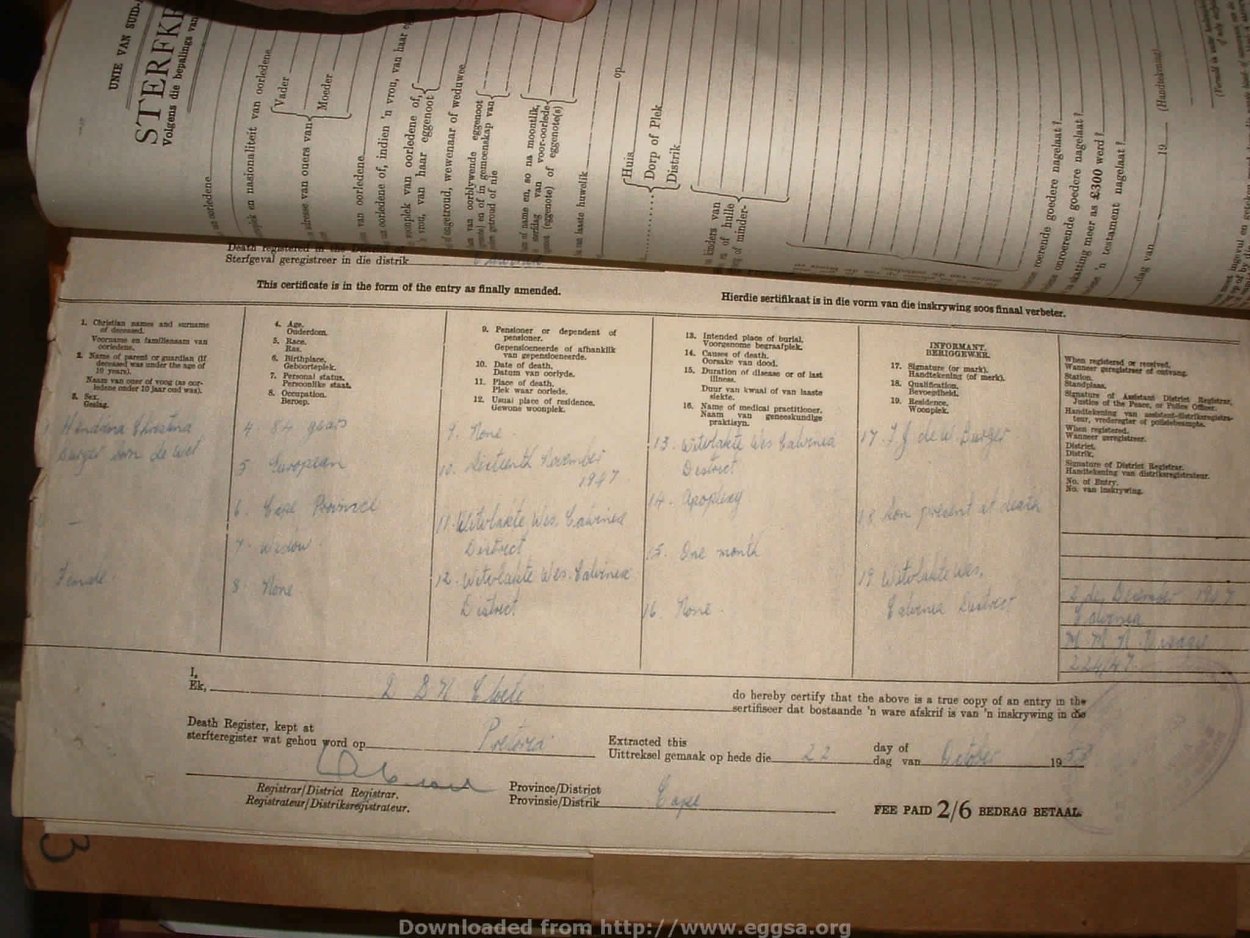 UNIE VAN SUID-
STERFKE
Volgens die bepalings van
oorledene
en nasionaliteit van oorledene
Vader
Moeder
adresse van ouers van
van oorledene
oorledene of, indien 'n vrou, van haar
woonplek van oorledene of,
vrou, van haar eggenoot
ongetroud, wewenaar of weduwee
van oorblywende eggenoot
en of in gemeenskap van
getroud of nie
van name en, so na moontlik,
sterfdag van voor-oorlede
(eggenote) of eggenote(s)
van laaste huwelik
op
Huis
Dorp of Plek
Distrik
kinders van
of hulle
of minder-
roerende goedere nagelaat?
onroerende goedere nagelaat?
skatting meer as £300 werd?
'n testament nagelaat?
dag van 19
(Handtekening)
Death registered in the
Sterfgeval geregistreer in die distrik
This certificate is in the form of the entry as finally amended.
Hierdie sertifikaat is in die vorm van die inskrywing soos finaal verbeter.
1. Christian names and surname of deceased.
Voorname en familienaam van oorledene.
2. Name of parent or guardian (if deceased was under the age of 10 years).
Naam van ouer of voog (as oorledene onder 10 jaar oud was).
3. Sex.
Geslag.
Christina
Burger born de Wet
-
Female
4. Age.
Ouderdom.
5. Race.
Ras.
6. Birthplace.
Geboorteplek.
7. Personal status.
Persoonlike staat.
8. Occupation.
Beroep.
4. 84 years
5. European
6. Cape Province
7. Widow
8. None
9. Pensioner or dependent of pensioner.
Gepensioeneerde of afhanklik van gepensioeneerde.
10. Date of death.
Datum van oorlyde.
11. Place of death.
Plek waar oorlede.
12. Usual place of residence.
Gewone woonplek.
9. None
10. Sixteenth November
1947
11. Witvlakte Wes. Calvinia
District
12. Witvlakte Wes. Calvinia
District
13. Intended place of burial.
Voorgenome begraafplek.
14. Causes of death.
Oorsake van dood.
15. Duration of disease or of last illness.
Duur van kwaal of van laaste siekte.
16. Name of medical practitioner.
Naam van geneeskundige praktisyn.
13. Witvlakte Wes Calvinia
District
14. Apoplexy
15. One month
16. None
INFORMANT.
BERIGGEWER.
17. Signature (or mark).
Handtekening (of merk).
18. Qualification.
Bevoegdheid.
19. Residence.
Woonplek.
17. J J de W. Burger
18. Son present at death
19. Witvlakte Wes.
Calvinia District
When registered or received.
Wanneer geregistreer of ontvang.
Station.
Standplaas.
Signature of Assistant District Registrar, Justice of the Peace, or Police Officer.
Handtekening van assistent-distriksregistrateur, vrederegter of polisiebeampte.
When registered.
Wanneer geregistreer.
District.
Distrik.
Signature of District Registrar.
Handtekening van distriksregistrateur.
No. of Entry.
No. van inskrywing.
2 December 1947
Calvinia
Visage
224/47
I,
Ek,
do hereby certify that the above is a true copy of an entry in the
sertifiseer dat bostaande 'n ware afskrif is van 'n inskrywing in die
Death Register, kept at
sterfteregister wat gehou word op Pretoria
Extracted this
Uittreksel gemaak op hede die 22
day of
dag van October 1958
Registrar/District Registrar.
Registrateur/Distriksregistrateur.
Province/District
Provinsie/Distrik Cape
FEE PAID 2/6 BEDRAG BETAAL.
3
Downloaded from http://www.eggsa.org